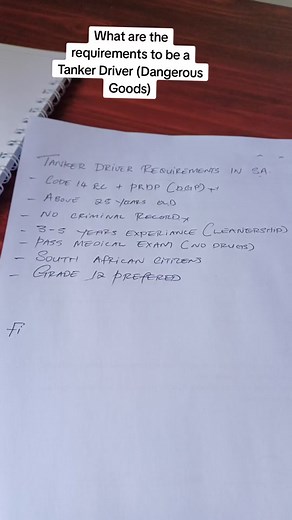 What are the
requirements to be a
Tanker Driver (Dangerous
Goods)
TANKER DRIVER REQUIREMENTS IN SA
- CODE 14 RC + PRDP (DGP)
- ABOVE 25 YEARS OLD
- NO CRIMINAL RECORD
- 3-5 YEARS EXPERIANCE (LEANERSHIP)
- PASS MEDICAL EXAM (NO DRUGS)
- SOUTH AFRICAN CITIZENS
- GRADE 12 PREFERED
Fi